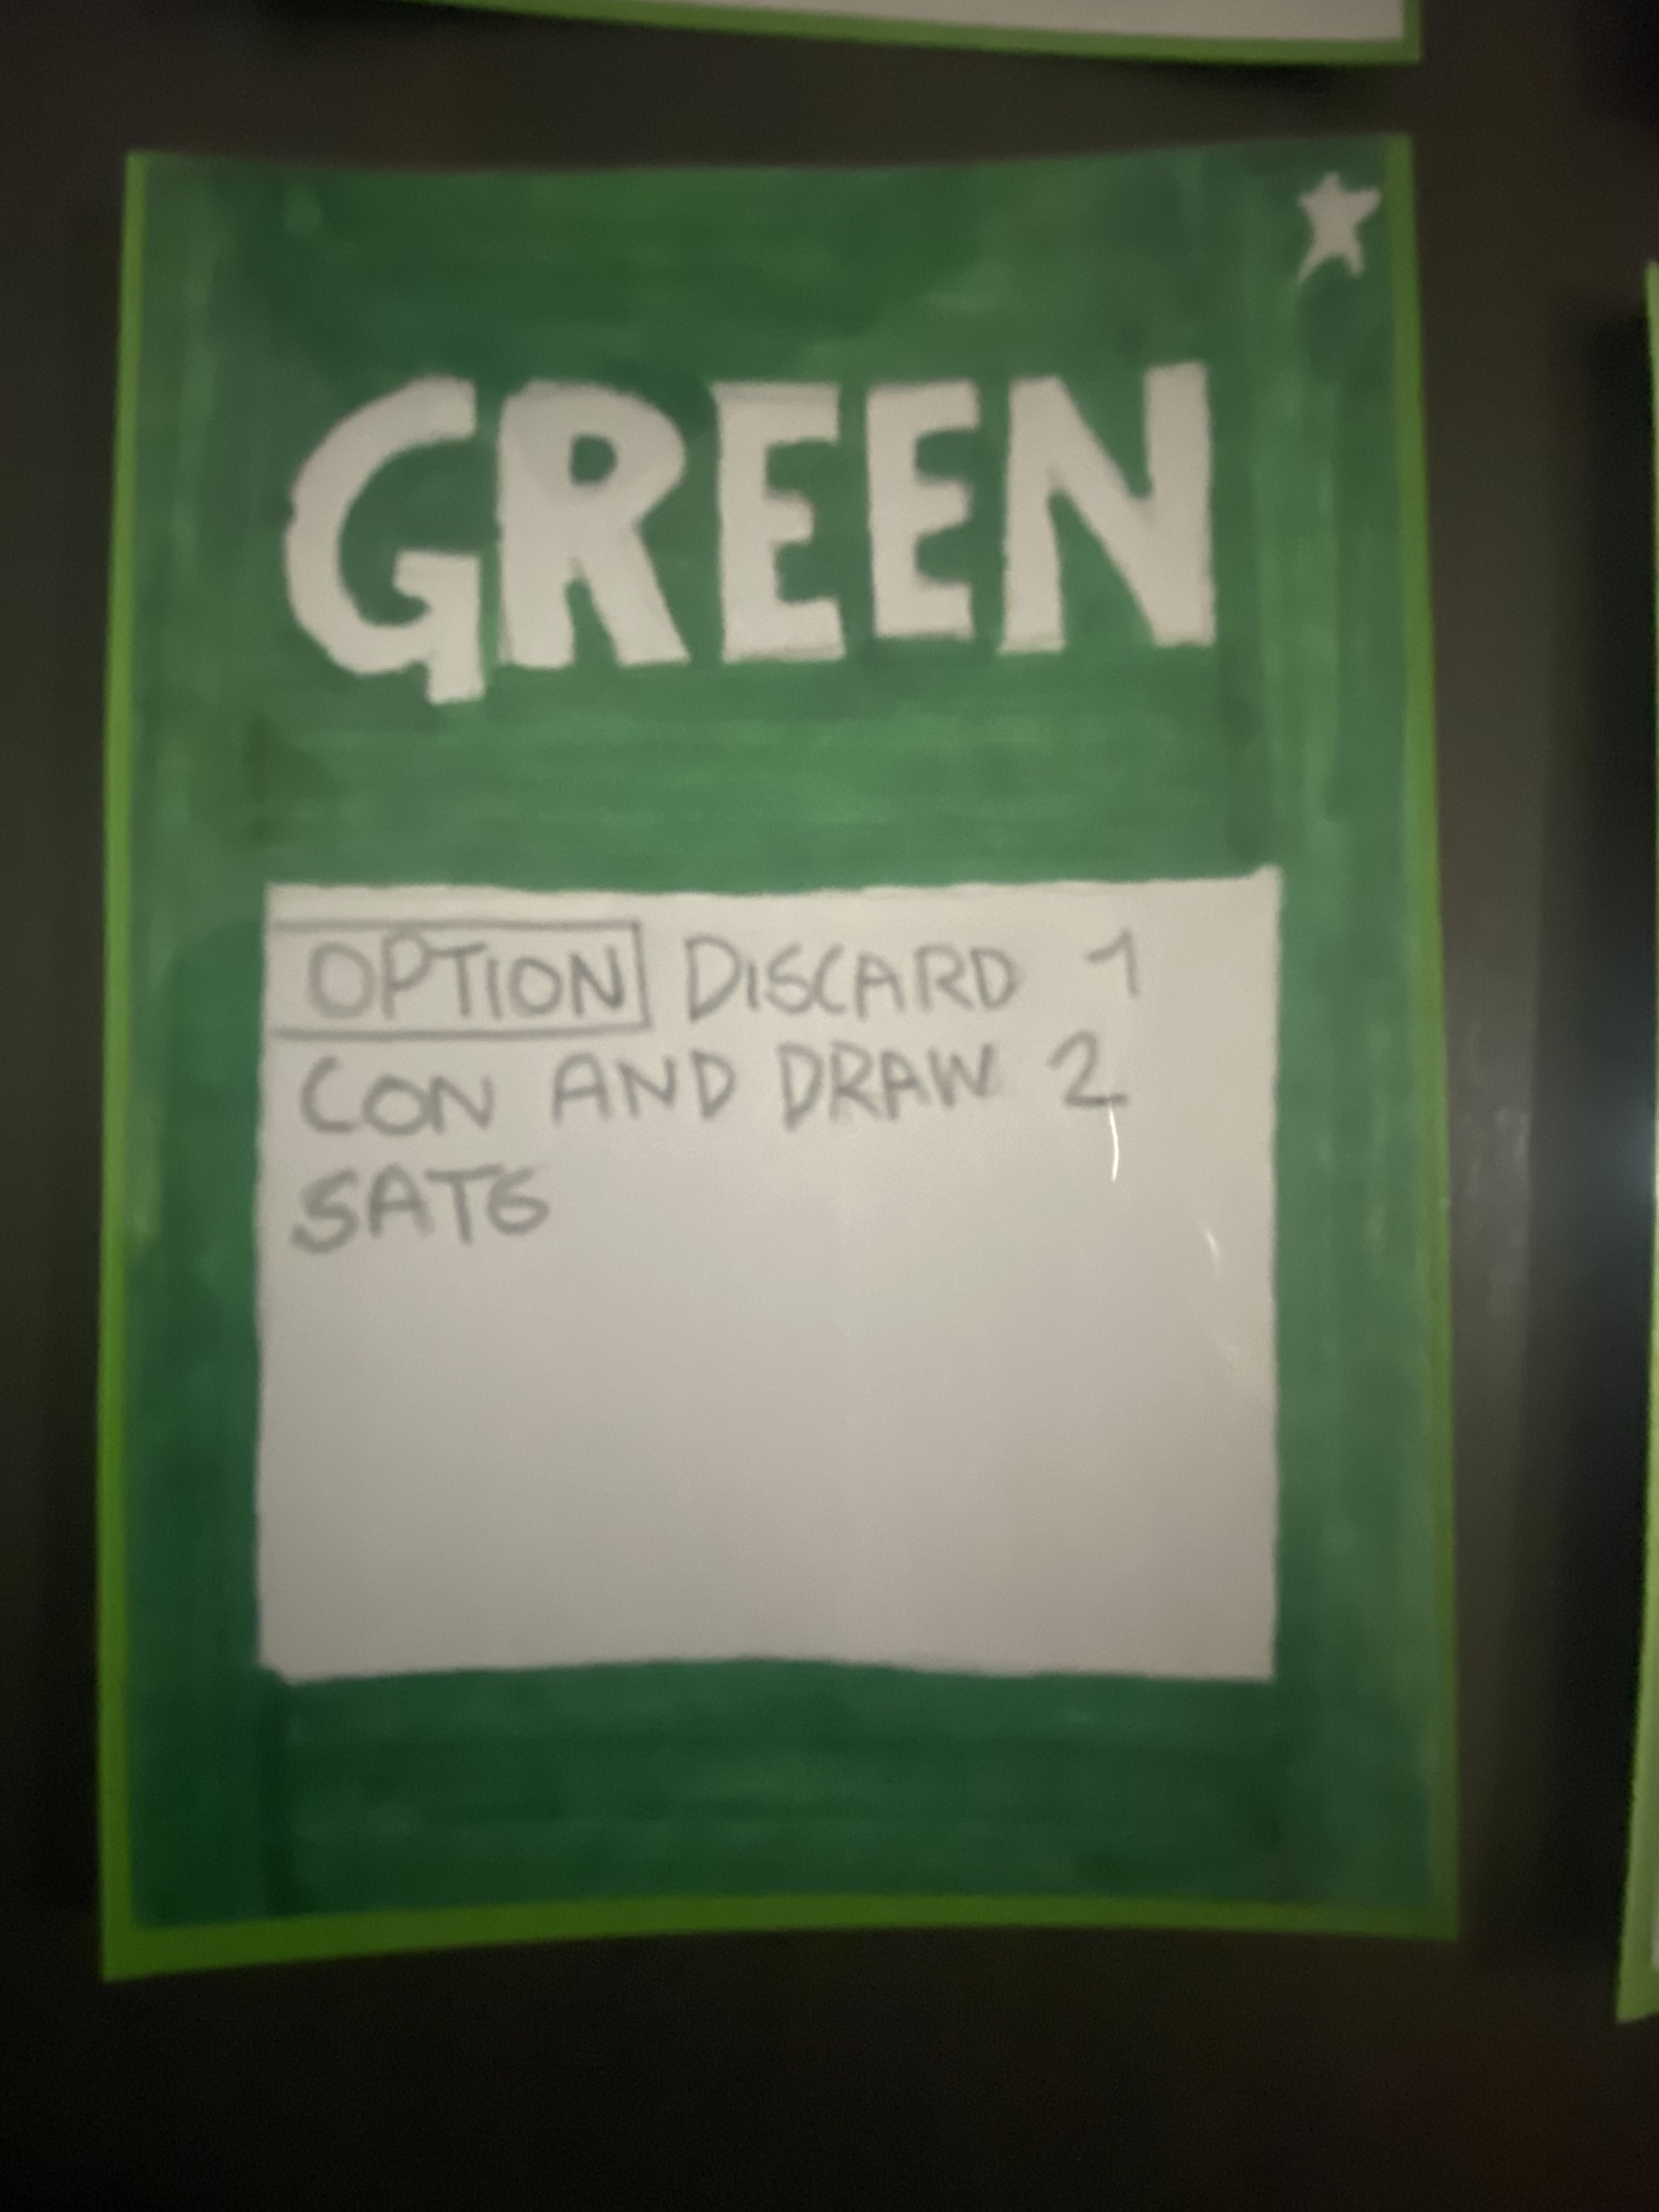 GREEN
OPTION DISCARD 1
CON AND DRAW 2
SATS